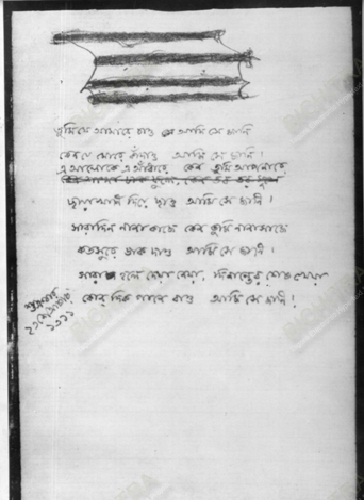 তুমি যে আমারে চাও আমি সে জানি
কেন যে মোরে কাঁদাও আমি সে জানি!
এ আলোকে এ আঁধারে কেন তুমি আপনারে
ছায়াখানি দিয়ে ছাও আমি সে জানি!
সারাদিন নানা কাজে কেন তুমি নানা সাজে
কত সুরে ডাক দাও আমি সে জানি!
সারা হলে দেয়া নেয়া, দিনান্তের শেষ খেয়া
কোন দিক পানে বাও আমি সে জানি!